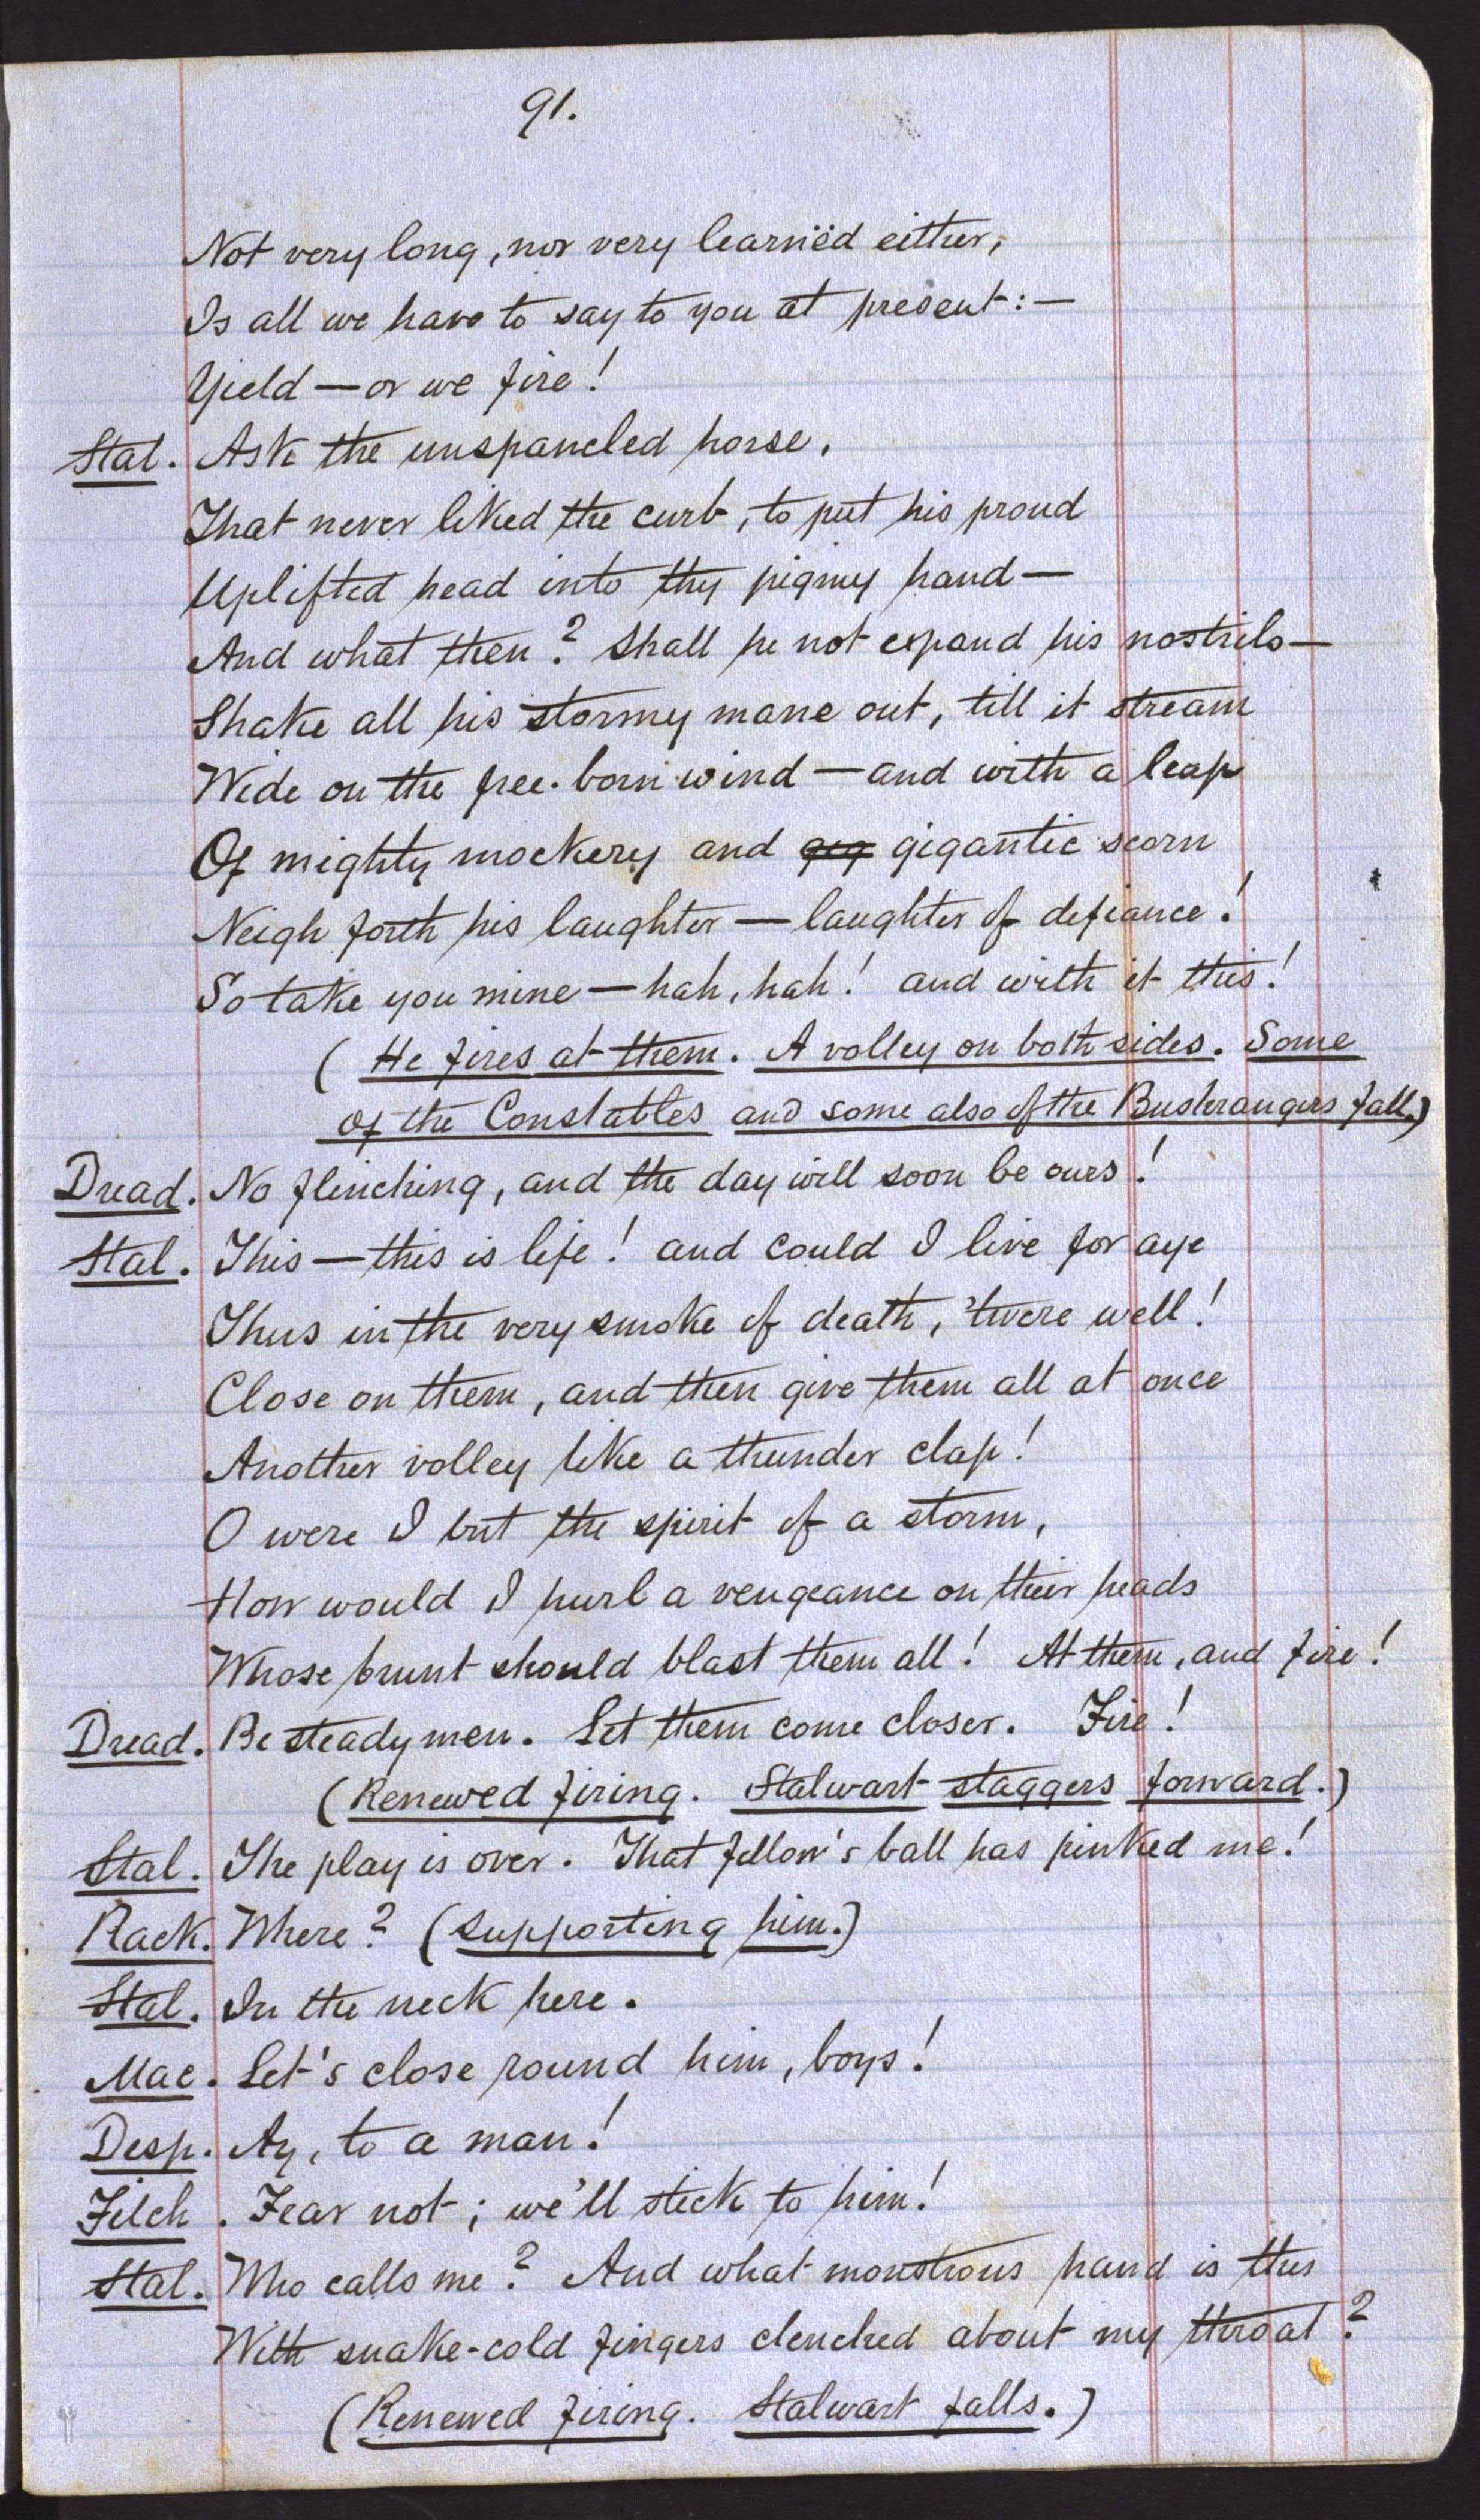 91.
Not very long, nor very learnëd either,
Is all we have to say to you at present:—
Yield — or we fire!
Stal. Ask the unspancled horse,
That never liked the curb, to put his proud
Uplifted head into thy pigmy hand—
And what then? Shall he not expand his nostrils—
Shake all his stormy mane out, till it stream
Wide on the free-born wind — and with a leap
Of mighty mockery and gig gigantic scorn
Neigh forth his laughter — laughter of defiance!
So take you mine — hah, hah! and with it this!
(He fires at them. A volley on both sides. Some
of the Constables and some also of the Bushrangers fall.)
Dread. No flinching, and the day will soon be ours!
Stal. This — this is life! and could I live for aye
Thus in the very smoke of death, 'twere well!
Close on them, and then give them all at once
Another volley like a thunder clap!
O were I but the spirit of a storm,
How would I hurl a vengeance on their heads
Whose brunt should blast them all! At them, and fire!
Dread. Be steady men. Let them come closer. Fire!
(Renewed firing. Stalwart staggers forward.)
Stal. The play is over. That fellow's ball has pinked me!
Rack. Where? (supporting him.)
Stal. In the neck here.
Mac. Let's close round him, boys!
Desp. Ay, to a man!
Filch. Fear not; we'll stick to him!
Stal. Who calls me? And what monstrous hand is this
With snake-cold fingers clenched about my throat?
(Renewed firing. Stalwart falls.)